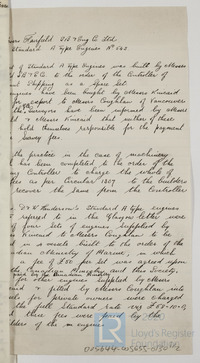 Fairfield SB & Eng Co Ltd
Standard A Type Engines No 643
of Standard A Type Engines was built by Messrs
to the order of the Controller of
Shipping as a Spare Set.
engines have been bought by Messrs Kincaid
for export to Messrs Coughlan of Vancouver
this Surveyors have been informed by Messrs
& Messrs Kincaid that neither of these
hold themselves responsible for the payment
Survey fees.
the practice in the case of machinery
has been completed to the order of the
Controller to charge the whole of
fees as per Circular 1507 to the builders
recover the same from the Controller
D & W Henderson's Standard A type engines
refered to in the Glasgow letter were
of four sets of engines supplied by
Kincaid to Messrs Coughlan to be
in vessels built to the order of the
Canadian Ministry of Marine, in which
a fee of £50 per set was agreed upon
the Canadian Ministry and this Society.
for other engines supplied by Messrs
and fitted by Messrs Coughlan into
for private owners were charged
the full Standard rate
these fees were paid by the
of the engines
Lloyd's Register
Foundation